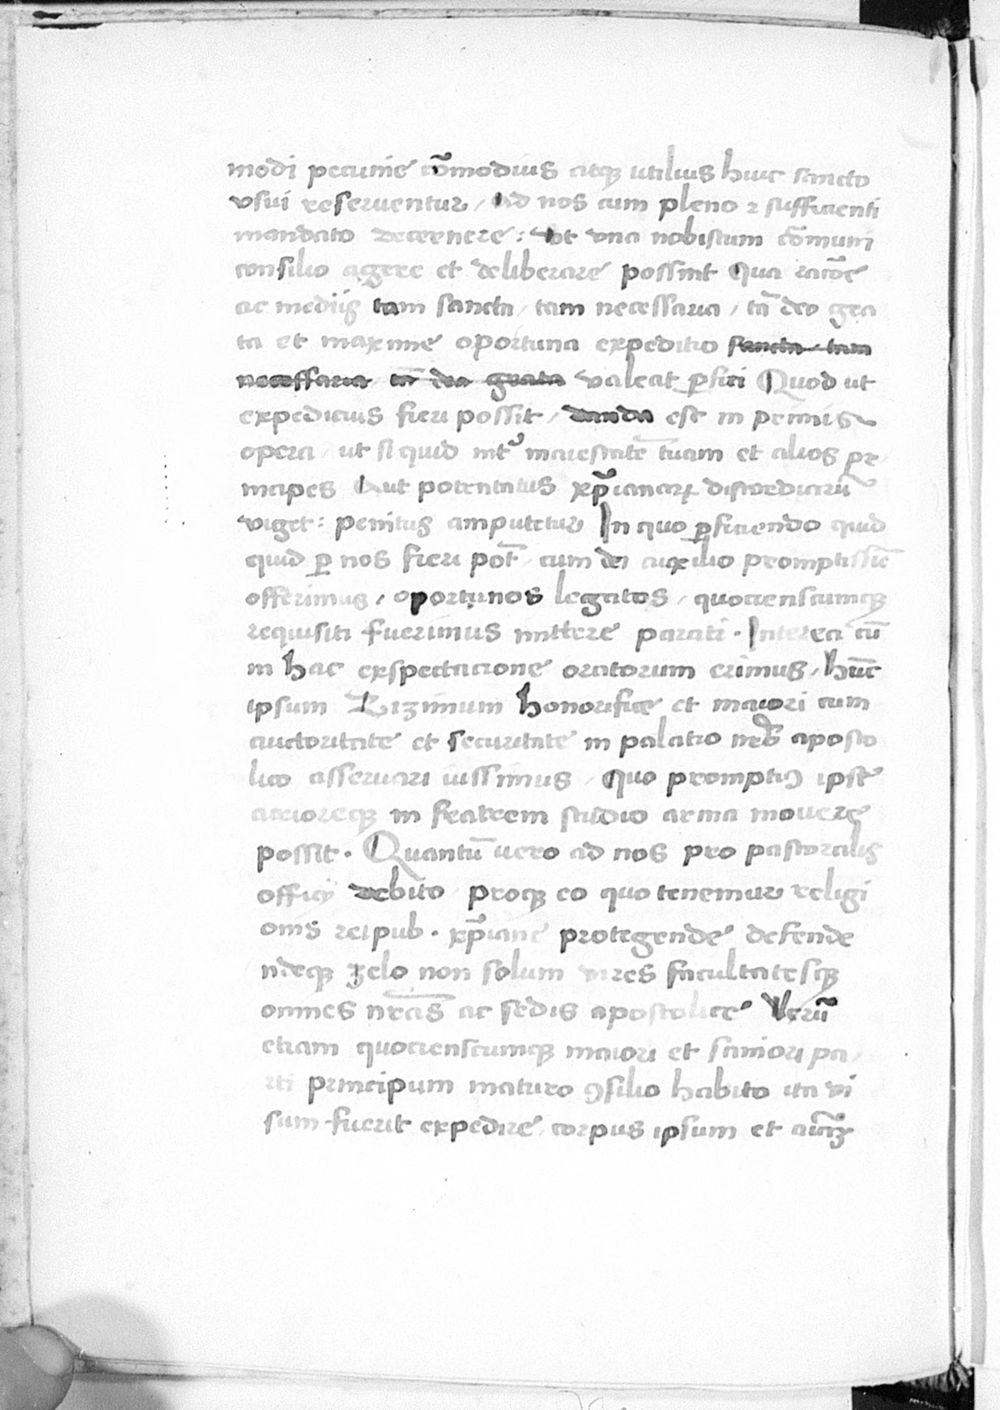 modi pecunie cō̃modius atq̃ utilius huic sancto
vsui reseruentur / ad nos cum pleno ⁊ sufficienti
mandato decernere : vt vna nobiscum cōmuni
consilio agere et deliberare possint Qua racōe
ac mediis tam sancta / tam necessaria / tā deo gra
ta et maxime oportuna expeditio sancta tam
necessaria tā deo grata valeat ꝑfici Quod ut
expedicius fieri possit / danda est in primis
opera / ut si quid int̾ maiestatē tuam et alios pri
ncipes Aut potentatus xp̄ianaꝝ discordiarū
viget : penitus amputetur In quo ꝑficiendo quid
quid ꝑ nos fieri pōt / cum dei auxilio promptissīe
offerimus / oportunos legatos / quocienscumqꝫ
requisiti fuerimus mittere parati · Interea cū
in hac exspectacione oratorum erimus / hūc
ipsum Zizimum honorifice et maiori cum
auctoritate et securitate in palatio nr̄o aposto
lico asseruari iussimus / Quo promptiꝰ ipse
acrioreqꝫ in fratrem studio arma mouere
possit · Quantū uero ad nos pro pastoralis
officij debito / proqꝫ eo quo tenemur religi
onis reipub · xp̄iane protegende defende
ndeqꝫ zelo non solum vires facultatesqꝫ
omnes nr̄as ac sedis apostolice Verū
etiam quocienscumqꝫ maiori et saniori pa/
rti principum maturo ꝯsilio habito ita vi
sum fuerit expedire / corpus ipsum et